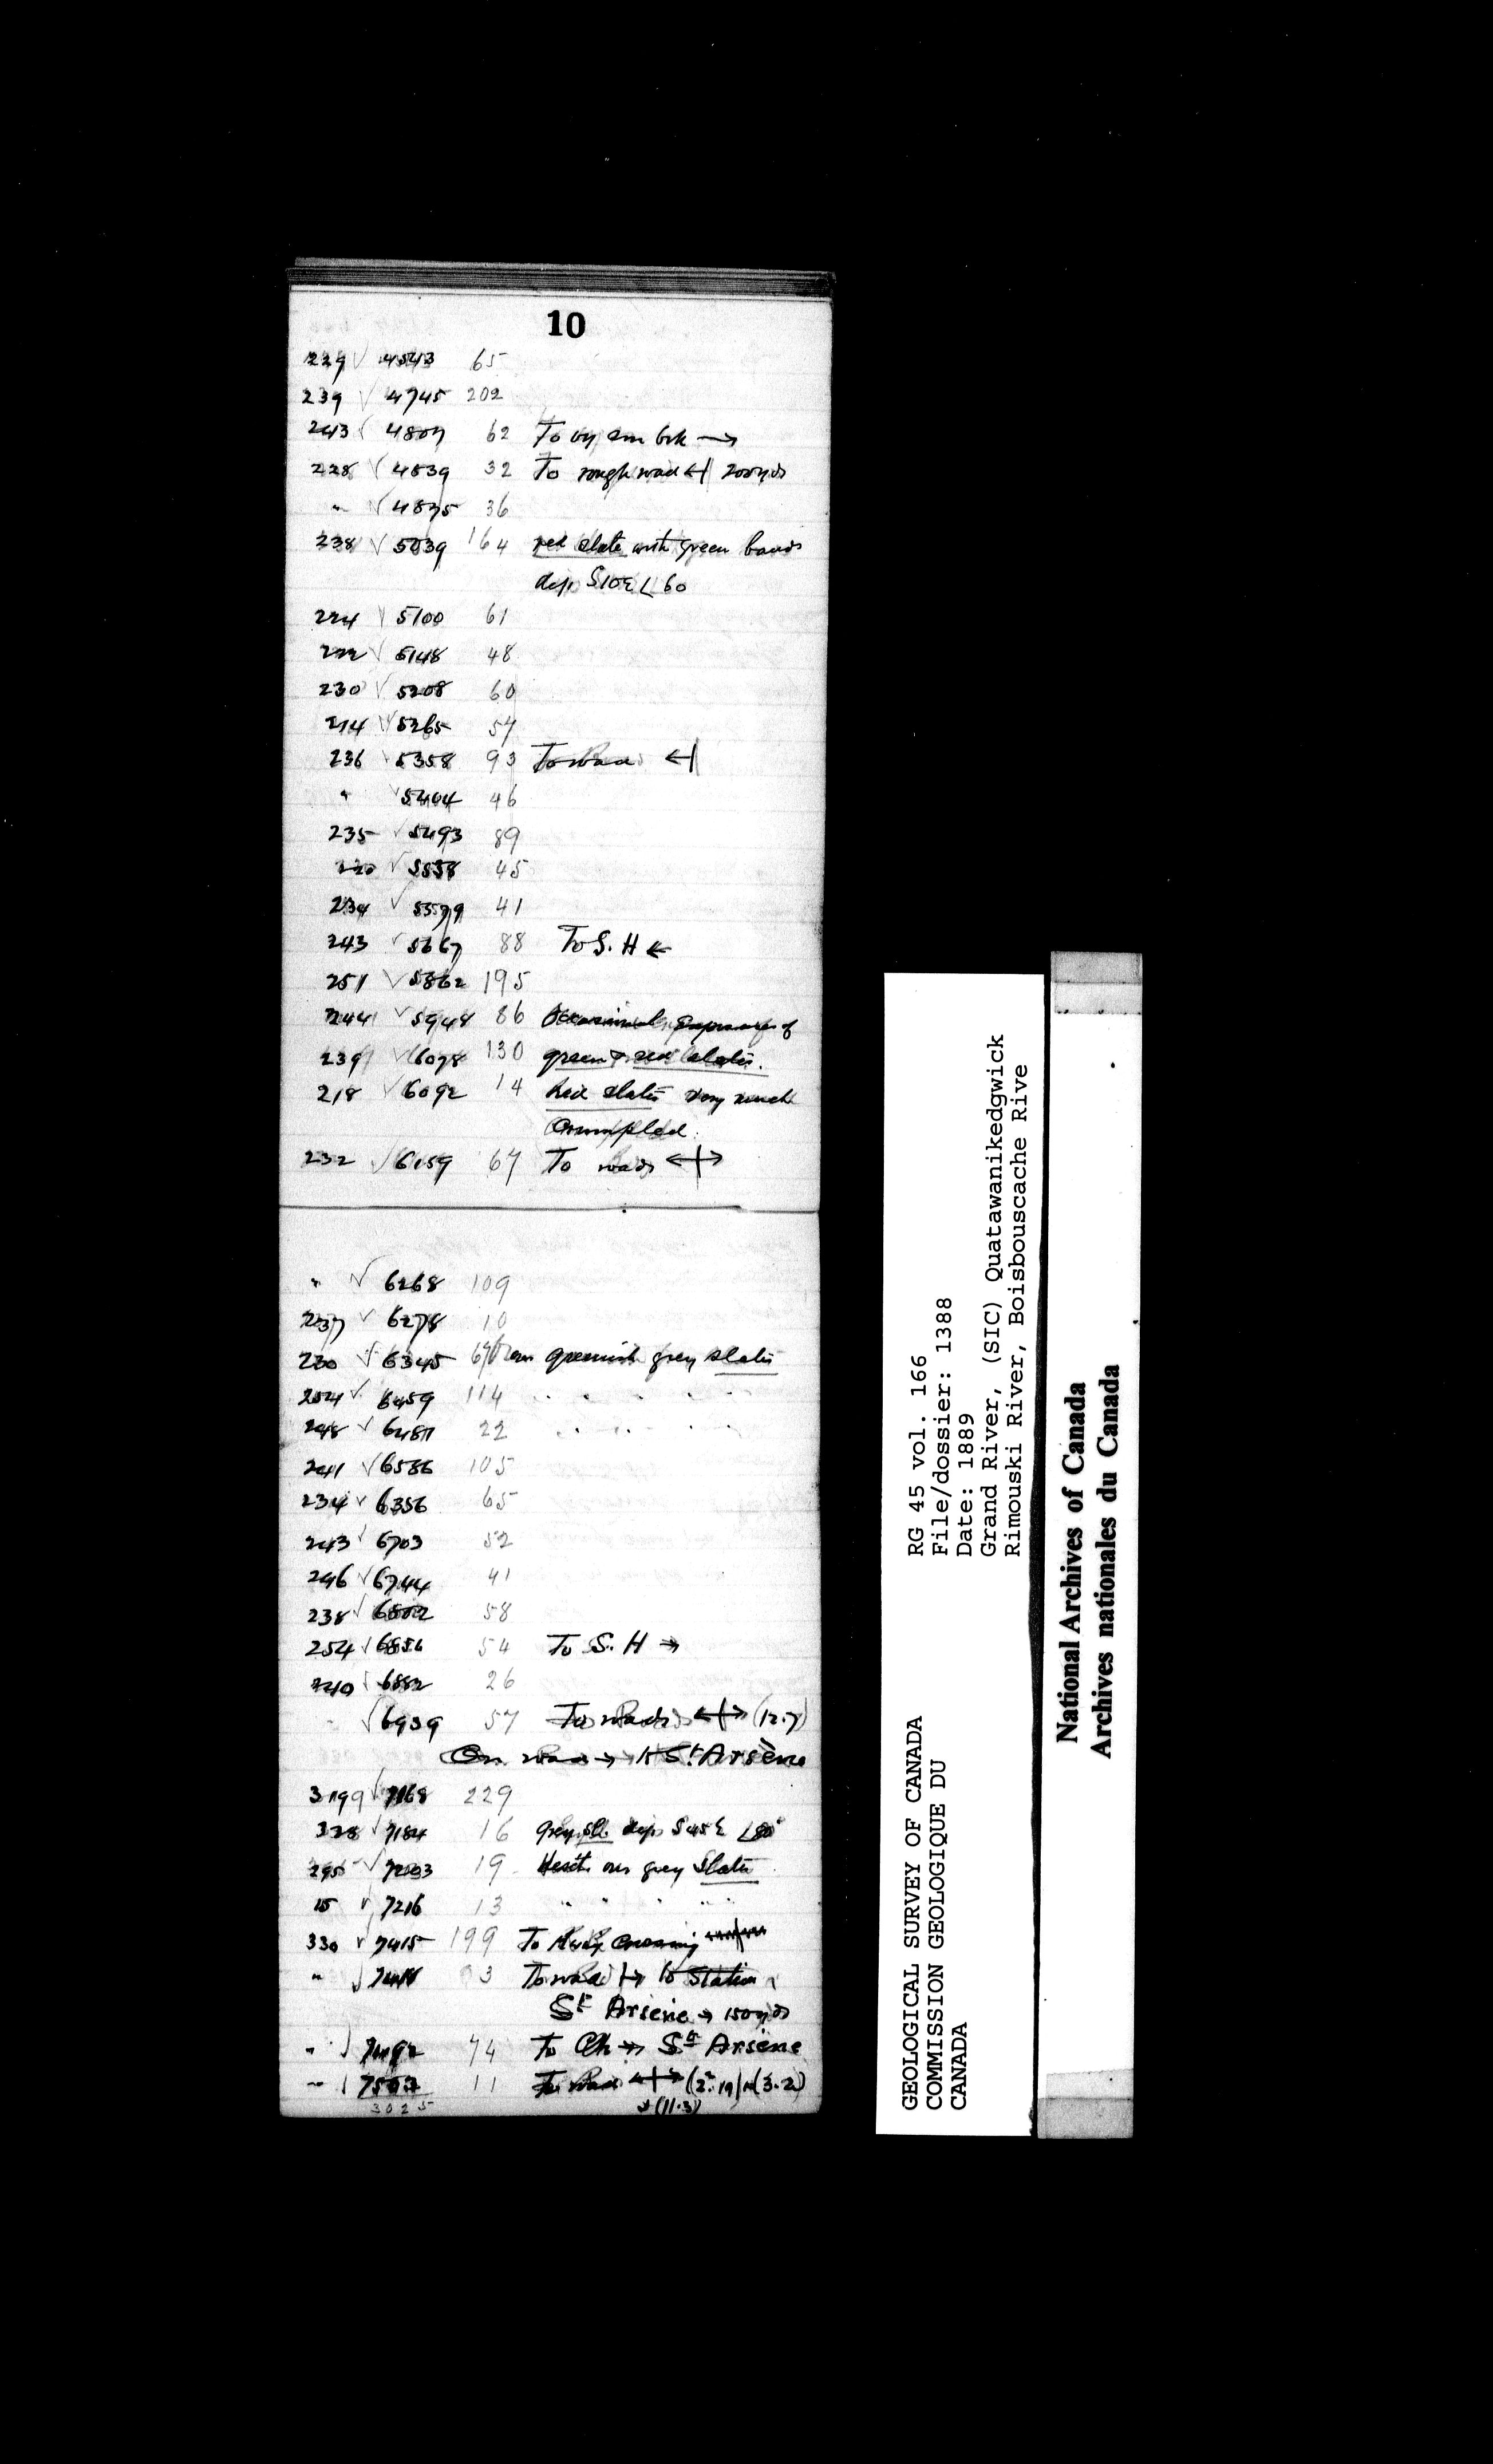 10
229 √ 4543 65
239 √ 4745 202
243 √ 4807 62 To sm brk →
228 √ 4839 32 To rough road ←| 200 yds
" √ 4875 36
238 √ 5039 164 red slate with green bands
dip S10E ∠ 60
224 √ 5100 61
222 √ 5148 48
230 √ 5208 60
214 √ 5265 57
236 √ 5358 93 To road ←|
" √ 5404 46
235 √ 5493 89
220 √ 5538 45
234 √ 5579 41
243 √ 5667 88 To S. H ←
251 √ 5862 195
244 √ 5948 86 Occasional exposures of
239 √ 6078 130 green & red slates.
218 √ 6092 14 Red slates very much
Crumpled.
232 √ 6159 67 To roads ←|→
" √ 6268 109
237 √ 6278 10
230 √ 6345 67 over greenish grey slates
254 √ 6459 114 " " " "
248 √ 6481 22 " " " "
241 √ 6586 105
234 √ 6356 65
243 √ 6703 52
246 √ 6744 41
238 √ 6802 58
254 √ 6856 54 To S. H →
240 √ 6882 26
" √ 6939 57 To roads ←|→ (12.7)
On road → to St Arsène
√ 7168 229
338 √ 7184 16 grey sl. dip S45E ∠80°
295 √ 7203 19 over grey Slates
15 √ 7216 13 " " " "
330 √ 7415 199 To Crossing
" √ 7418 3 To road |→ to Station
St Arsène → 150 yds
" √ 7492 74 To Ch → St Arsène
" √ 7503 11 To Road ←|→ (2.19) (3.2)
3025 (11.3)
GEOLOGICAL SURVEY OF CANADA
COMMISSION GEOLOGIQUE DU
CANADA
RG 45 vol. 166
File/dossier: 1388
Date: 1889
Grand River, (SIC) Quatawanikedgwick
Rimouski River, Boisbouscache Rive
National Archives of Canada
Archives nationales du Canada